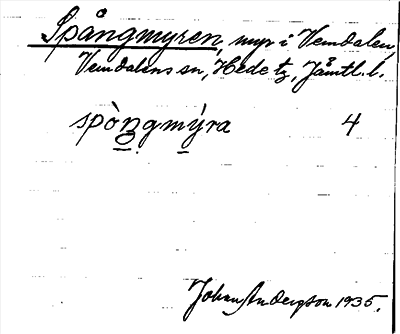 Spångmyren, myr i Vemdalen,
Vemdalens sn, Hede tg, Jämtl. l.
spòn̲gmy̲ra 4
Johan Anderzson 1935.